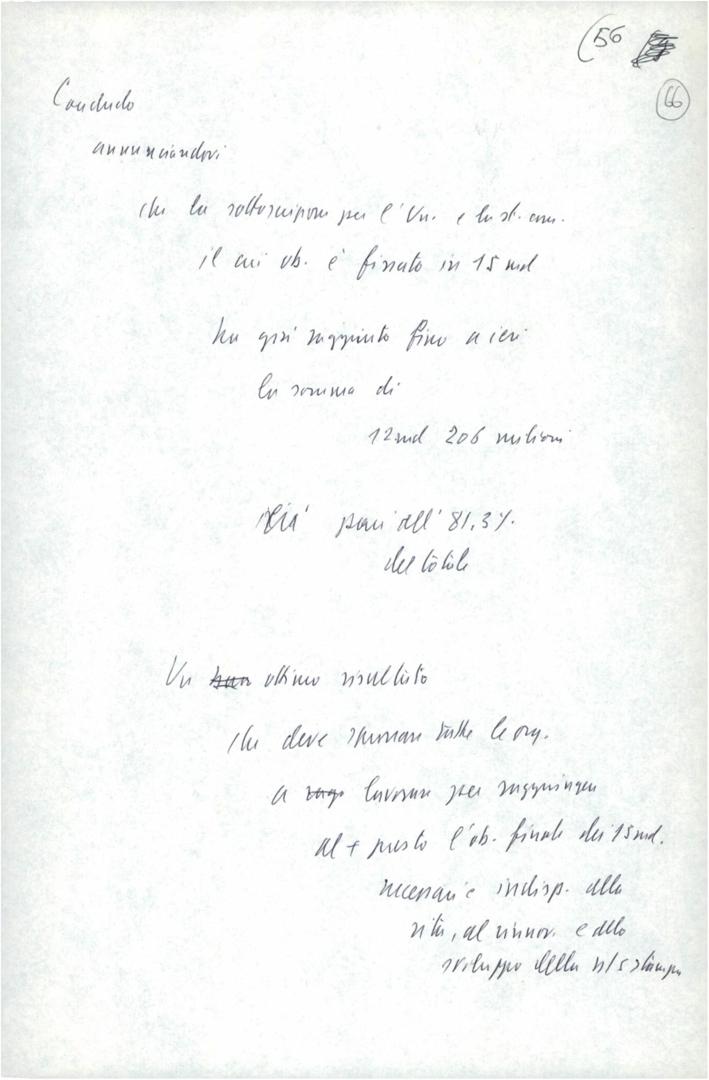 (56
66
Concludo
annunciandovi
che la sottoscrizione per l'Un. e la st. com.
il cui ob. è fissato in 15 md
ha già raggiunto fino a ieri
la somma di
12 md 206 milioni
pari all' 81,3%.
del totale
Un ottimo risultato
che deve spronare tutte le org.
a lavorare per raggiungere
al + presto l'ob. finale dei 15 md.
necessari e indisp. alla
vita, al rinnov. e allo
sviluppo della n/s stampa